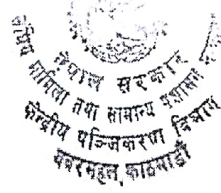 नेपाल सरकार
संघीय मामिला तथा सामान्य प्रशासन
केन्द्रीय पञ्जिकरण विभाग
बबरमहल, काठमाडौं